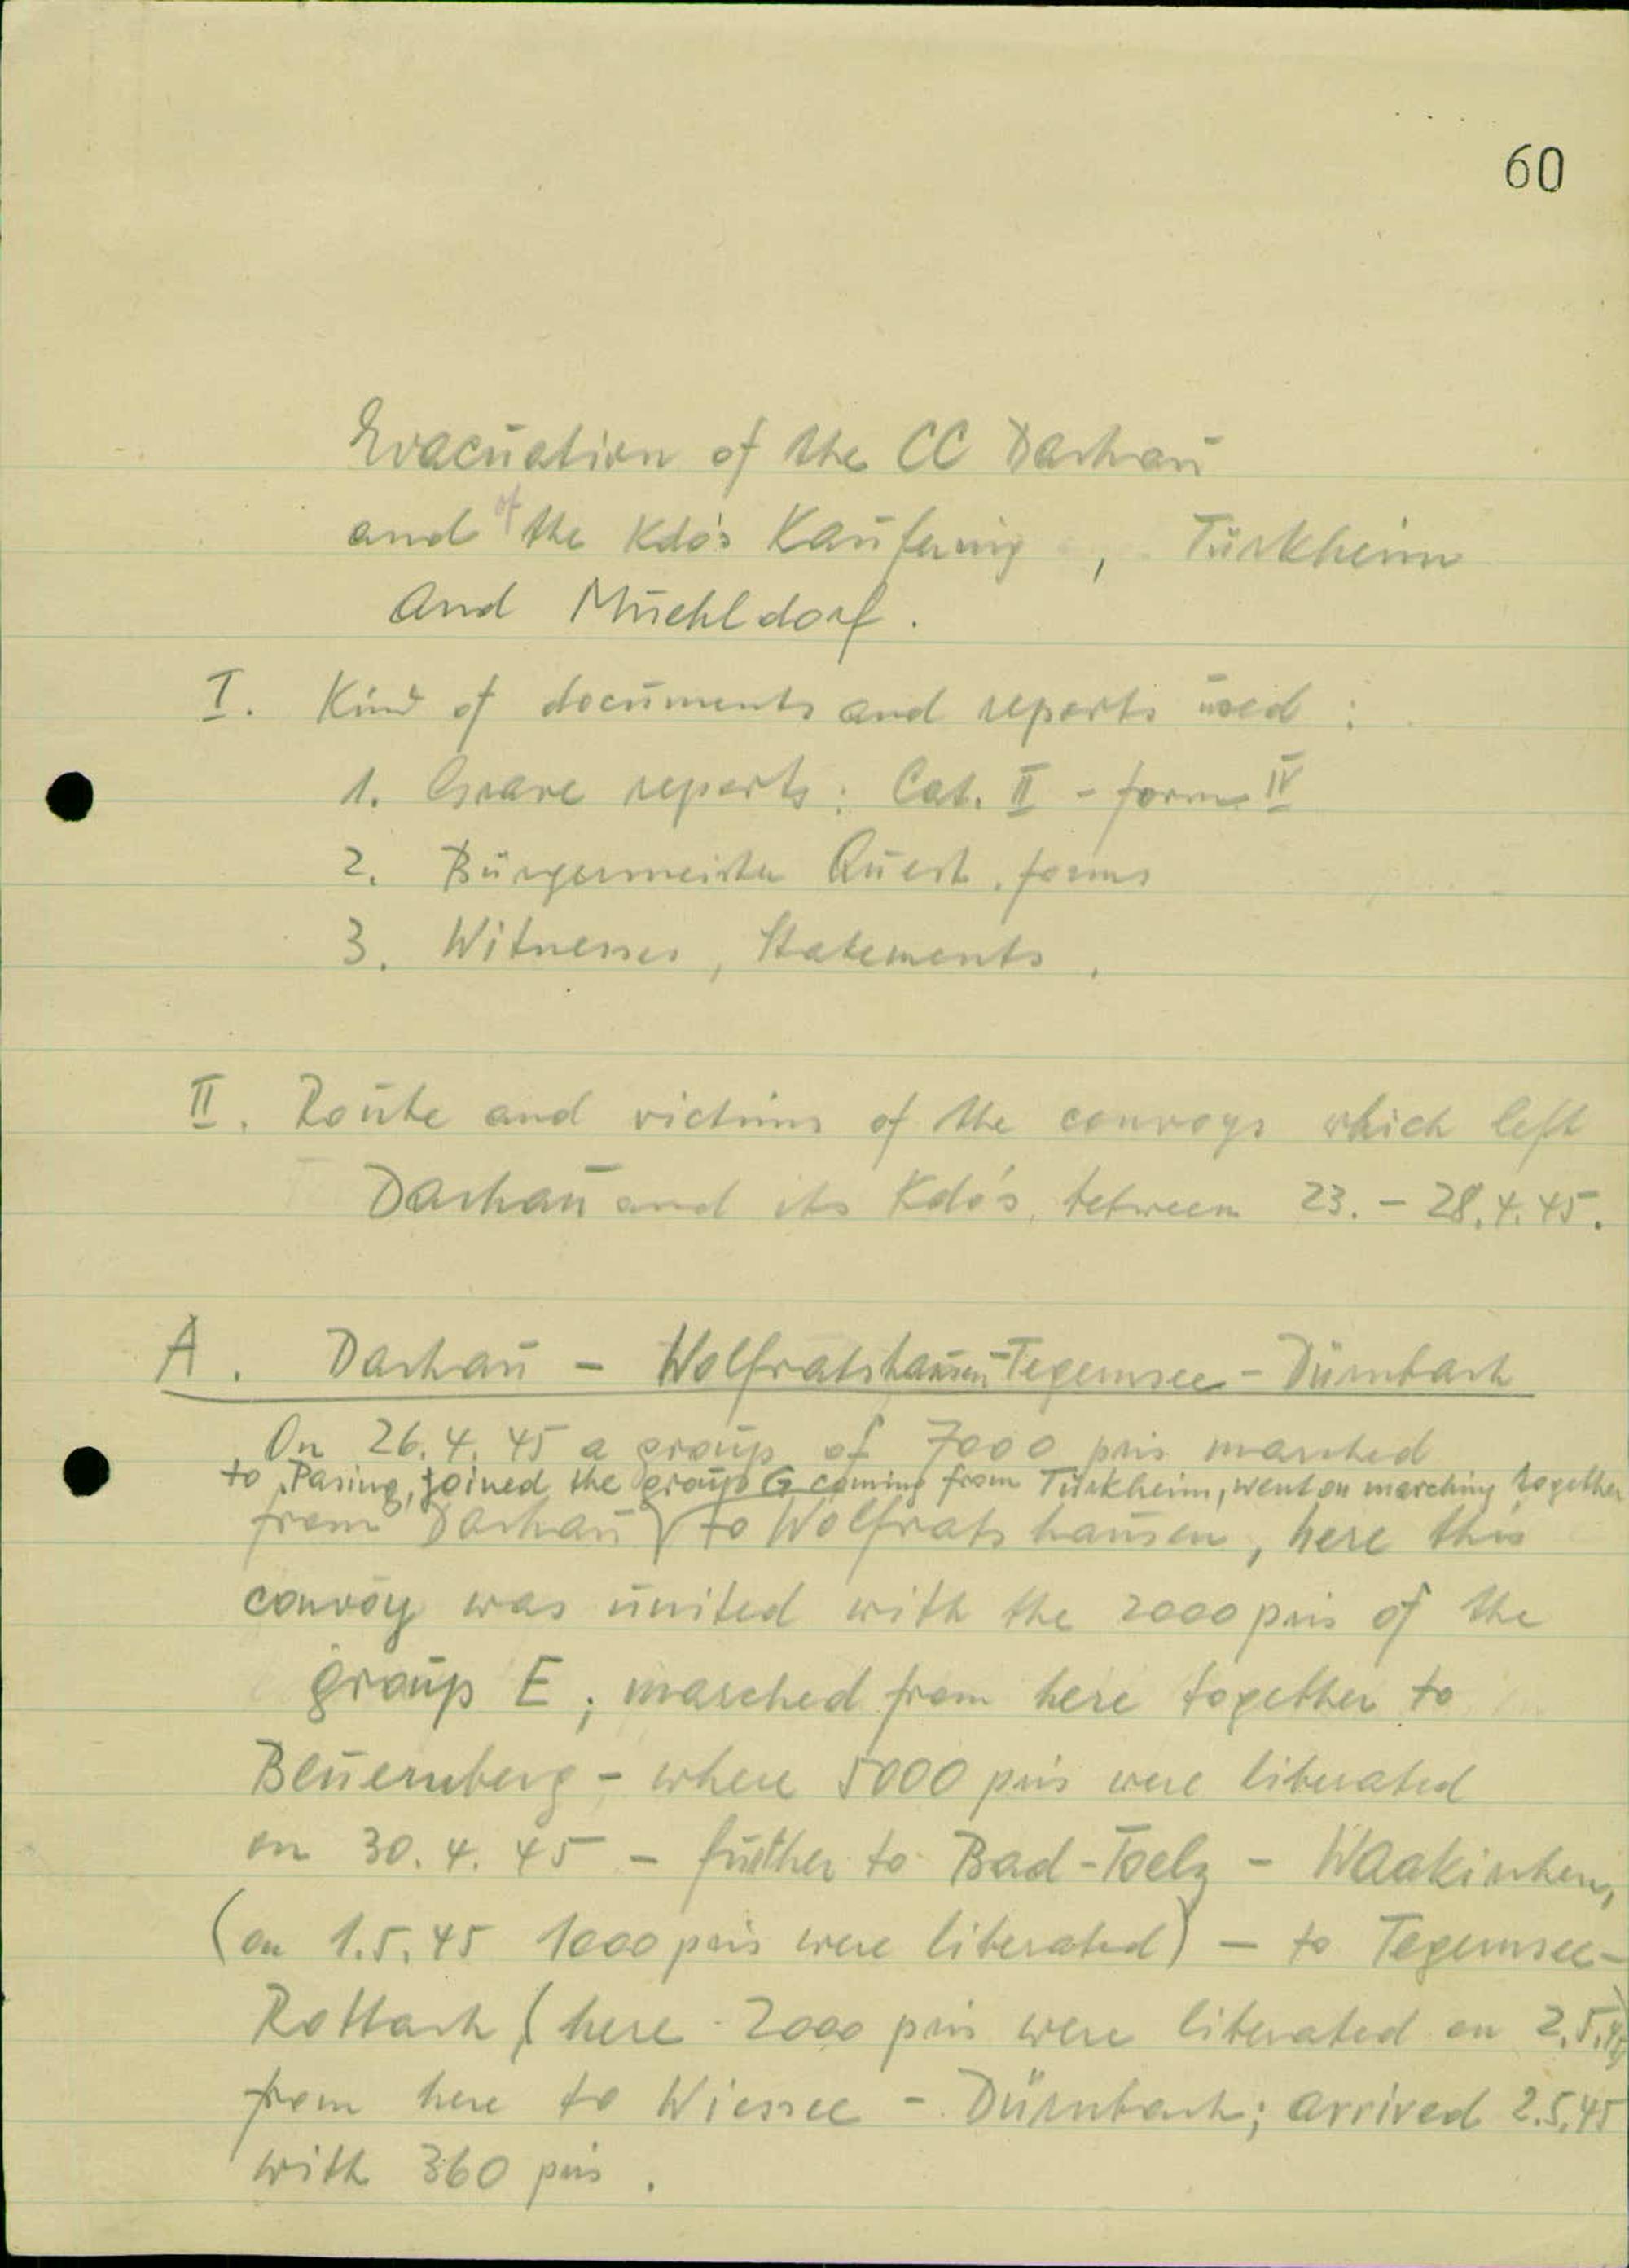 60
Evacuation of the CC Dachau
and of the Kdo's Kaufering , Türkheim
and Muehldorf .
I. Kind of documents and reports used :
1. Grave reports : Cat. II - form IV
2. Bürgermeister Quest. forms
3. Witnesses, Statements .
II. Route and victims of the convoys which left
Dachau and its Kdo's, between 23. - 28.4.45.
A. Dachau - Wolfratshausen - Tegernsee - Dürnbach
On 26.4.45 a group of 7000 pris marched
to Pasing, joined the group G coming from Türkheim, went on marching together
from Dachau to Wolfratshausen, here this
convoy was united with the 2000 pris of the
group E, marched from here together to
Beuernberg - where 5000 pris were liberated
on 30.4.45 - further to Bad-Toelz - Waakirchen,
(on 1.5.45 1000 pris were liberated) - to Tegernsee -
Rottach (here 2000 pris were liberated on 2.5.45)
from here to Wiessee - Dürnbach; arrived 2.5.45
with 360 pris .